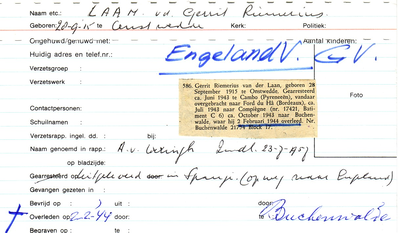 Naam etc.: LAAN v.d. Gerrit Riemerius
Geboren: 28-9-15 te Onstwedde Kerk: Politiek:
Ongehuwd/gehuwd met: Aantal kinderen:
Engeland V. G.V.
Huidig adres en telef.nr.:
Verzetsgroep :
Verzetswerk :
586. Gerrit Riemerius van der Laan, geboren 28
September 1915 te Onstwedde. Gearresteerd
ca. Juni 1943 te Cambo (Pyreneeën), vandaar
overgebracht naar Ford du Hâ (Bordeaux), ca.
Juli 1943 naar Compiègne (nr. 17421, Bati-
ment C 6) ca. October 1943 naar Buchen-
walde, waar hij 2 Februari 1944 overleed. Nr.
Buchenwalde 21774 Block 17.
Contactpersonen:
Schuilnamen :
Verzetsrapp. ingel. dd. : bij
Naam genoemd in rapp.: A.v.
op bladzijde:
Gearresteerd op: uitgeleverd door: in Spanje. (op weg naar Engeland)
Gevangen gezeten in:
Bevrijd op : uit: door:
Overleden op : 2-2-44 door: te Buchenwalde